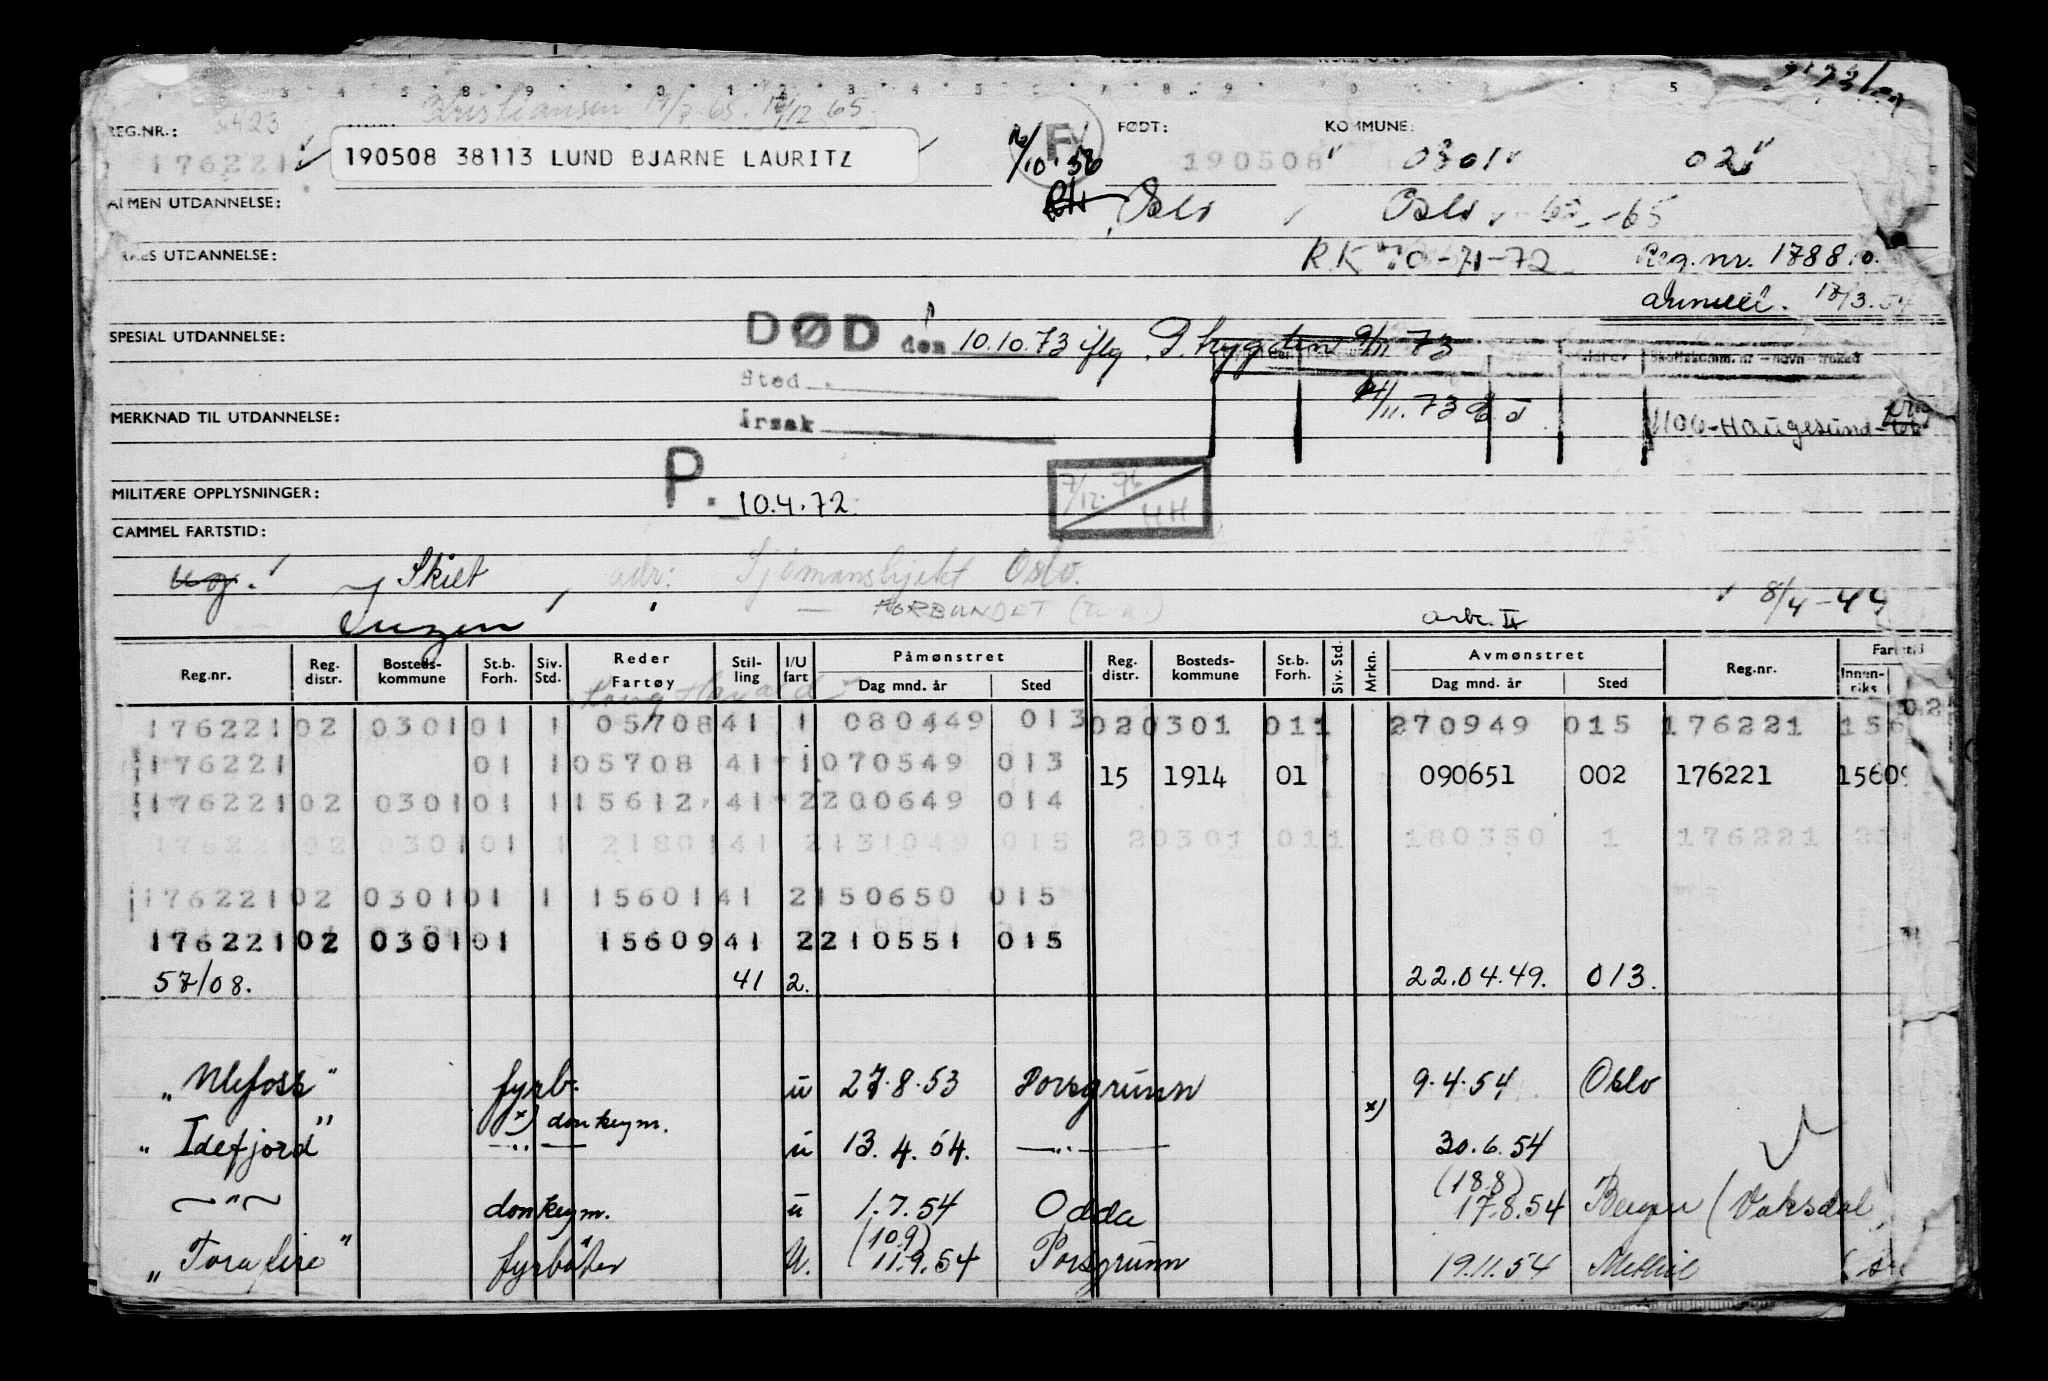 Kristiansen 65. 65.
REG.NR.: FØDT: KOMMUNE:
176221 190508 38113 LUND BJARNE LAURITZ 10.56 F 190508 0301 02
ALMEN UTDANNELSE: Oslo Oslo -65
UTDANNELSE: R.K 70-71-72 Reg.nr. 1788
annull. 3.54
SPESIAL UTDANNELSE: DØD den 10.10.73 iflg P. trygden 9/11 73
Sted
MERKNAD TIL UTDANNELSE: Årsak 11.73 1106-Haugesund-
MILITÆRE OPPLYSNINGER: P. 10.4.72. 7/12. 76 HH
GAMMEL FARTSTID:
ug. Skilt adr: Sjømanshjelt Oslo.
Ingen FORBUNDET 8/4-49
arb. II
Reg.nr. Reg. distr. Bosteds-kommune St.b. Forh. Siv. Std. Reder Fartøy Stil-ling I/U fart Påmønstret Dag mnd. år Sted Reg. distr. Bosteds-kommune St.b. Forh. Siv. Std. Mrkn. Avmønstret Dag mnd. år Sted Reg.nr. Innen-riks
176221 02 0301 01 1 05708 41 1 080449 013 02 0301 01 1 270949 015 176221 156
176221 01 1 05708 41 1 070549 013 15 1914 01 090651 002 176221 15609
176221 02 0301 01 1 15612 41 2 200649 014
176221 02 0301 01 1 21801 41 2 131049 015 2 0301 01 1 180350 1 176221 21
176221 02 0301 01 1 15601 41 2 150650 015
176221 02 0301 01 15609 41 2 210551 015
57/08. 41 2. 22.04.49. 013.
"Ulefoss" fyrb. u 27.8.53 Porsgrunn x) 9.4.54 Oslo
x) donkeym.
"Idefjord" —"— u 13.4.54. —"— 30.6.54
—"— donkeym. u 1.7.54 Odda (18.8) 17.8.54 Bergen (Vaksdal
"Torafire" fyrbøter u. (10.9) 11.9.54 Porsgrunn 19.11.54 Methil